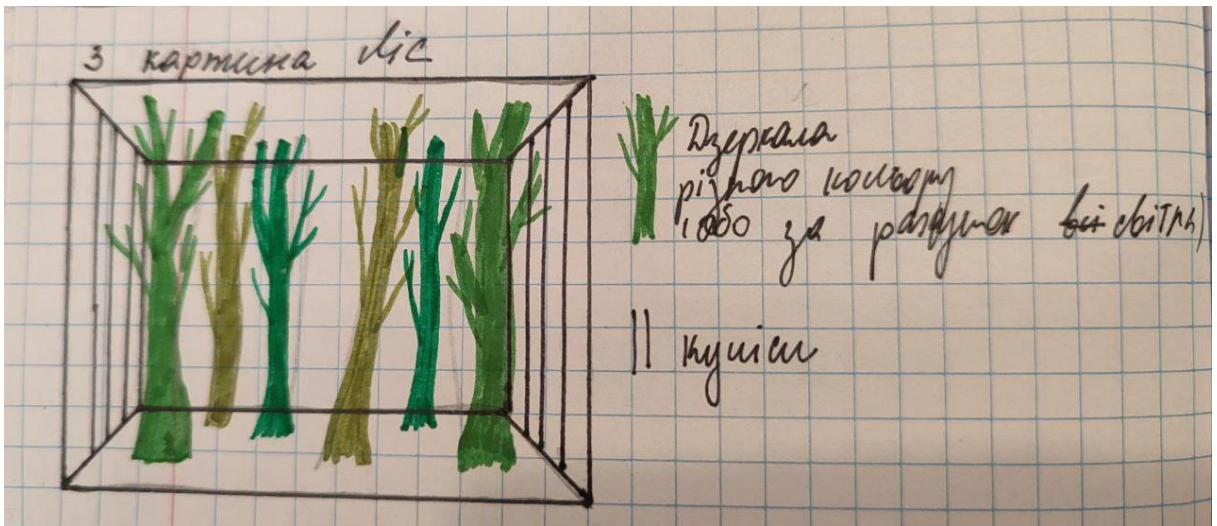 3 картина Ліс
Дзеркала
різного кольору
(або за рахунок світла)
|| куліси